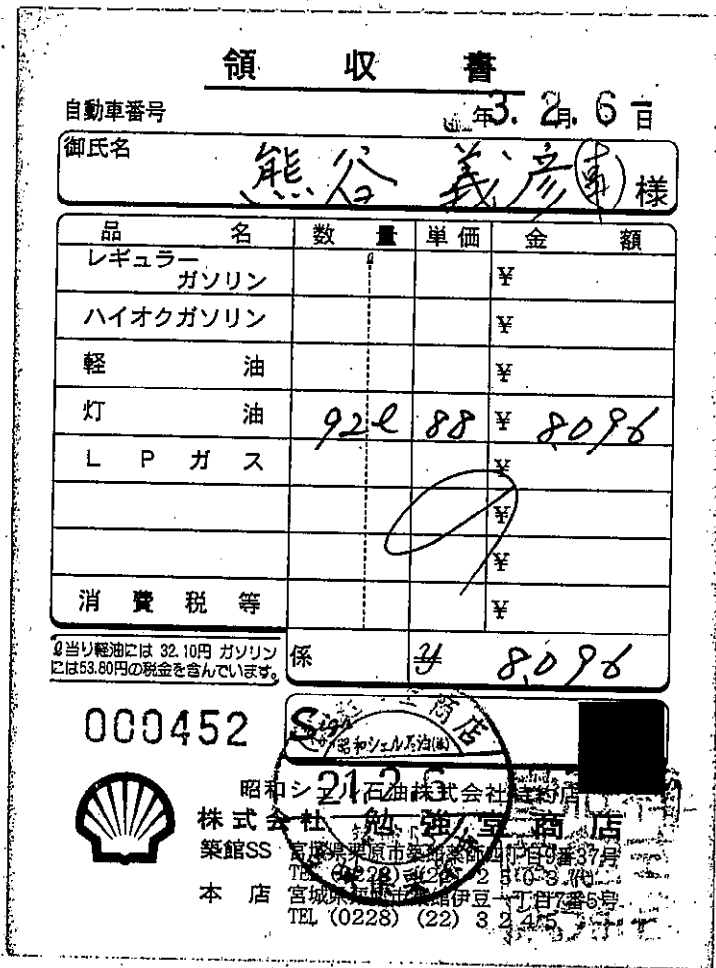 領収書
自動車番号 年3. 2月. 6日
御氏名 熊谷 義彦 様
品名 数量 単価 金額
レギュラーガソリン ℓ ¥
ハイオクガソリン ¥
軽油 ¥
灯油 92ℓ 88 ¥ 8,096
LPガス ¥
¥
¥
消費税等 ¥
ℓ当り軽油には 32.10円 ガソリン
には53.80円の税金を含んでいます。
係 ¥ 8,096
000452
商店
昭和シェル石油(株)
21.2.6
昭和シェル石油株式会社特約店
株式会社 勉強堂商店
築館SS 宮城県栗原市築館薬師四丁目9番37号
TEL
本店 宮城県栗原市築館伊豆一丁目7番5号
TEL (0228) (22) 3245